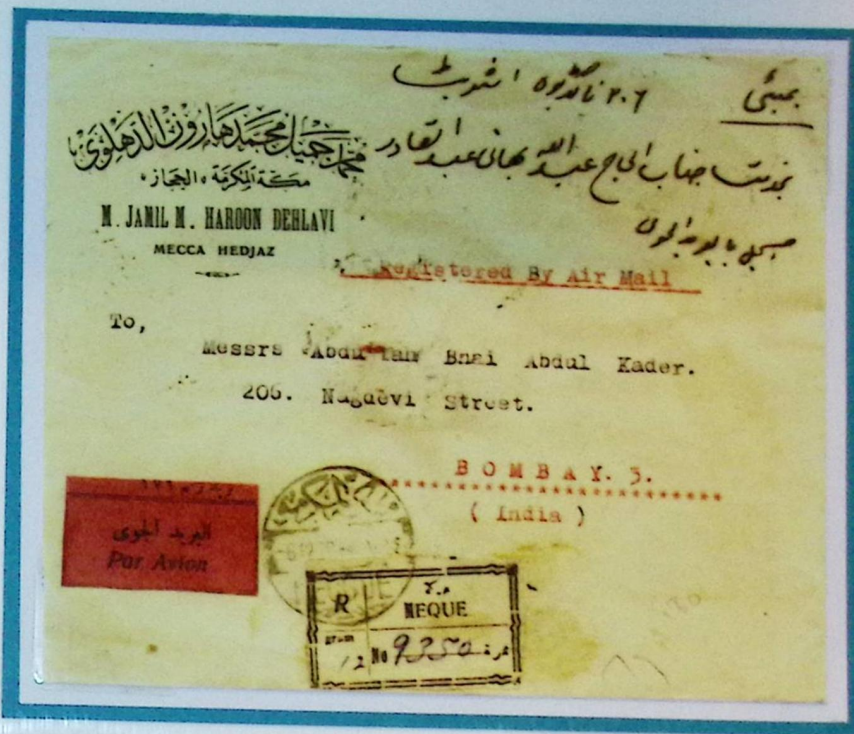 محمد جميل محمد هارون الدهلوي
مكة المكرمة، الحجاز،
M. JAMIL M. HAROON DEHLAVI
MECCA HEDJAZ
بمبئی
۲۰۶ ناگدیوی اسٹریٹ
جناب الحاج عبد الله بھائی عبد القادر
Registered By Air Mail
To,
Messrs Abdullah Bhai Abdul Kader.
206. Nagdevi Street.
BOMBAY. 3.
( India )
البريد الجوى
Par Avion
R
مكة
MEQUE
gram
12
No 9350 نمرة